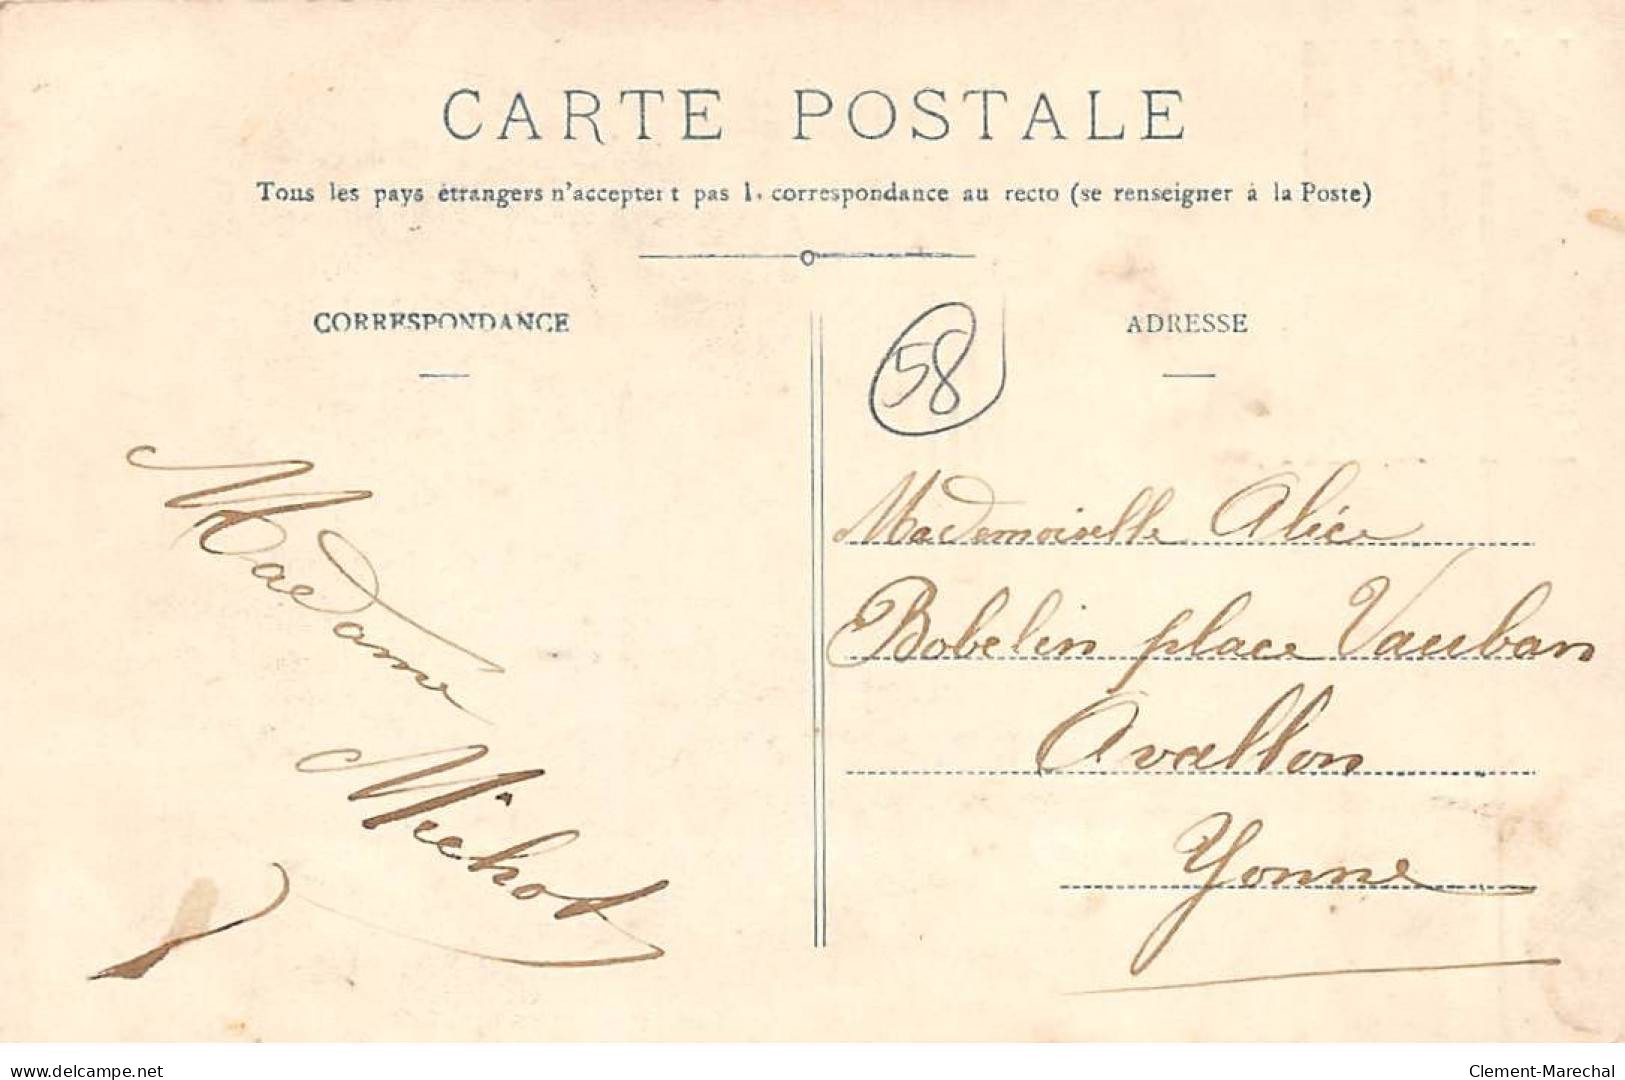 CARTE POSTALE
Tous les pays étrangers n'acceptent pas l. correspondance au recto (se renseigner à la Poste)
CORRESPONDANCE
ADRESSE
58
Madame
Michot
Mademoiselle Alice
Bobelin place Vauban
Avallon
Yonne
www.delcampe.net
Clement-Marechal